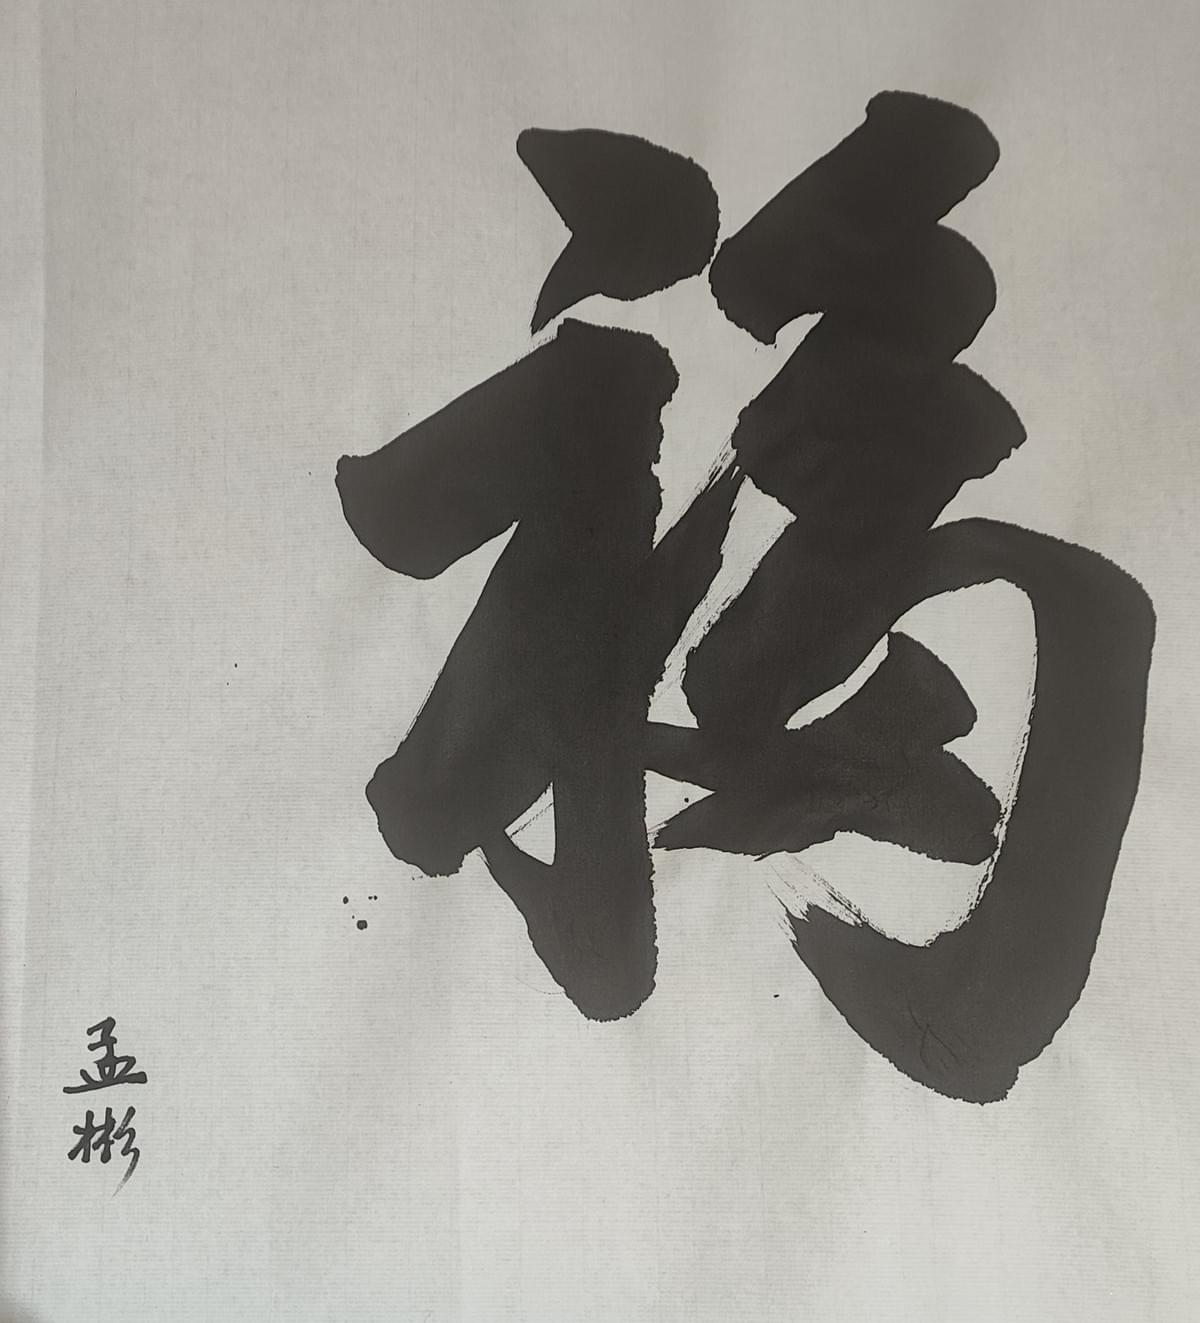 福
孟彬